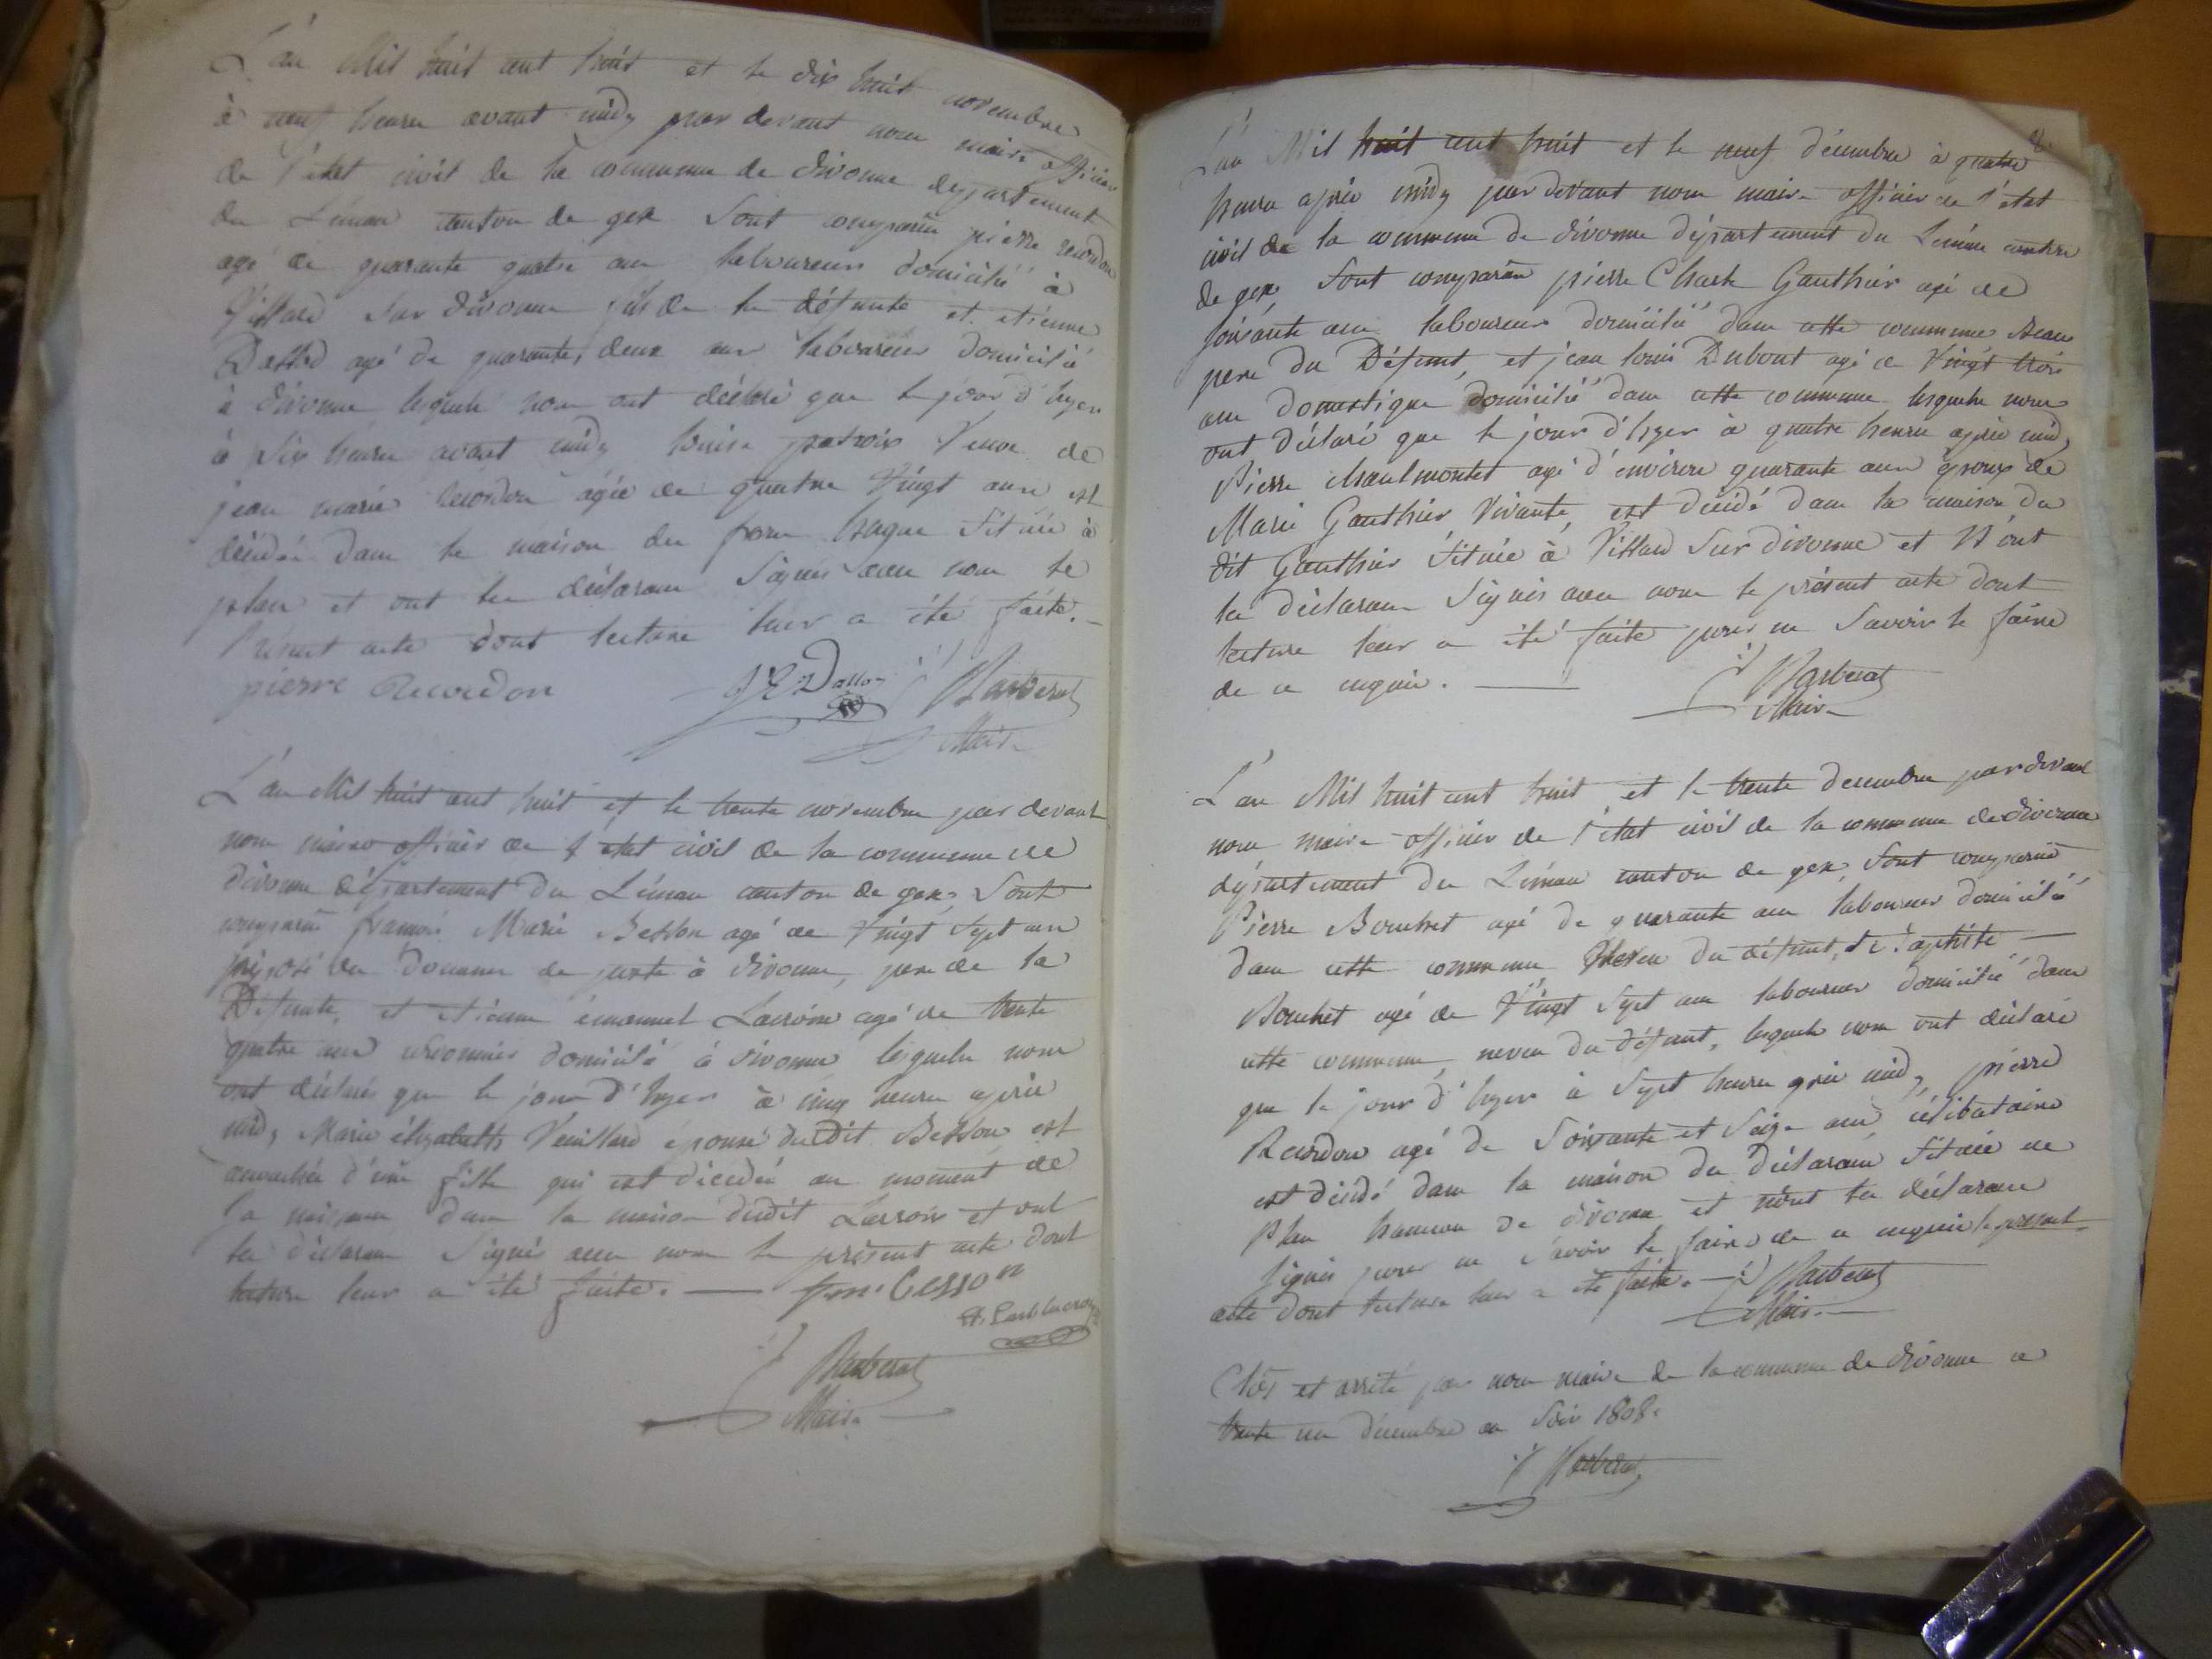 L'an Mil huit cent huit et le dix huit novembre
à neuf heure avant midy par devant nous maire officier
de l'état civil de la commune de divonne département
du Léman canton de gex Sont comparûs pierre recordon
agé de quarante quatre ans laboureur domicilié à
Villard sur divonne fils de la défunte et etienne
Dallod agé de quarante deux ans laboureur domicilié
à divonne lesquels nous ont déclaré que le jour d'hyer
à six heures avant midy louise Veuve de
jean marie recordon agée de quatre Vingt ans est
décédée dans la maison du située à
plan et ont les déclarans Signés avec nous le
présent acte dont lecture leur a été faite.
pierre Recordon J E Dallod Barberat
Maire
L'an Mil huit cent huit et le trente novembre par devant
nous maire officier de l'état civil de la commune de
divonne département du Léman canton de gex Sont
comparûs françois Marie Besson agé de Vingt Sept ans
préposé des Douanes de poste à divonne, pere de la
Défunte, et etienne émanuel Lacroix agé de trente
quatre ans domicilié à divonne lesquels nous
ont déclarés que le jour d'hyer à cinq heures après
midy Marie élizabeth Vuillard épouse dudit Besson est
accouchée d'une fille qui est décédée au moment de
Sa naissance dans la maison dudit Lacroix et ont
les déclarans Signé avec nous le présent acte dont
lecture leur a été faite.
Barberat
Maire
8.
L'an Mil huit cent huit et le neuf décembre à quatre
heures après midy par devant nous maire officier de l'état
civil de la commune de divonne département du Léman canton
de gex Sont comparûs pierre Charle Gauthier agé de
soixante ans laboureur domicilié dans cette commune Beau
pere du Défunt, et jean louis Dubout agé de Vingt trois
ans Domestique domicilié dans cette commune lesquels nous
ont déclaré que le jour d'hyer à quatre heures après midy
Pierre agé d'environ quarante ans époux de
Marie Gauthier Vivante est décédé dans la maison du
dit Gauthier située à Villard Sur divonne et N'ont
les déclarans Signés avec nous le présent acte dont
lecture leur a été faite pour ne Savoir le faire
de ce enquis.
Barberat
Maire
L'an Mil huit cent huit et le trente decembre par devant
nous maire officier de l'état civil de la commune de divonne
département du Léman canton de gex, Sont comparûs
Pierre Bouchet agé de quarante ans laboureur domicilié
dans cette commune Neveu du défunt, et Baptiste
Bouchet agé de Vingt Sept ans laboureur domicilié dans
cette commune, neveu du défunt, lesquels nous ont déclaré
que le jour d'hyer à Sept heures après midy pierre
Recordon agé de Soixante et Seize ans célibataire
est décédé dans la maison des déclarans située au
Plan hameau de divonne et n'ont les déclarans
Signés pour ne Savoir le faire de ce enquis le présent
acte dont lecture leur a été faite. Barberat
Maire
Clos et arrêté par nous maire de la commune de divonne ce
trente un décembre au Soir 1808.
Barberat